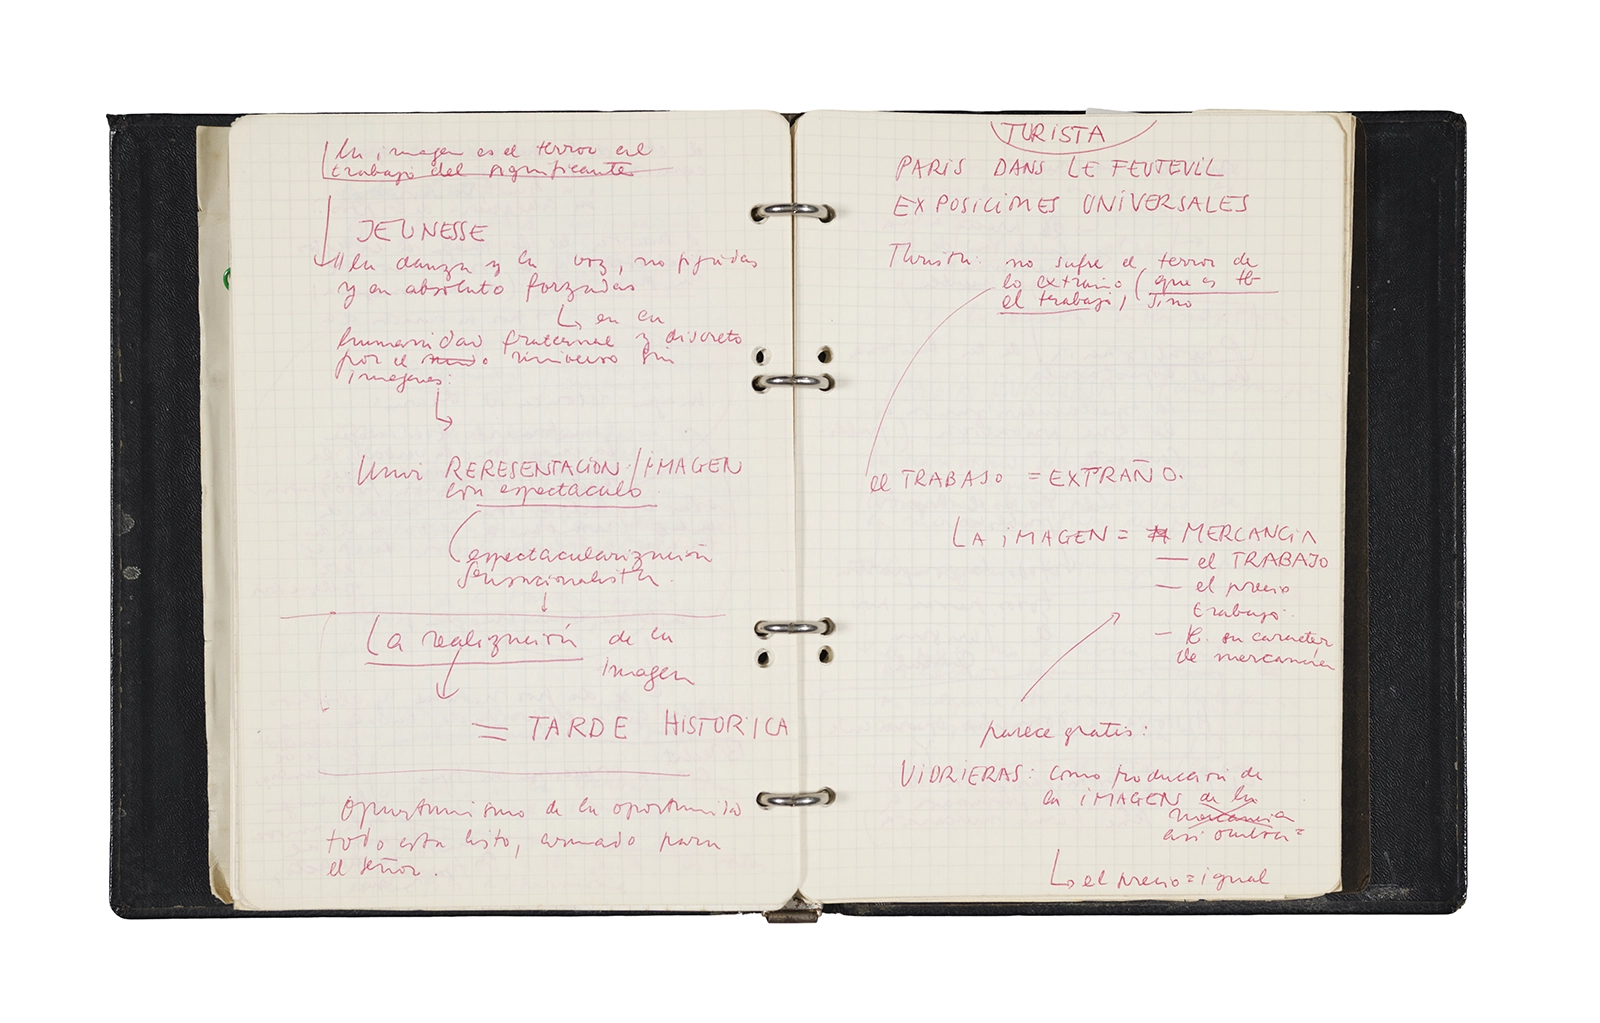 la imagen es el terror al
trabajo del significante
JEUNESSE
"la danza y la voz, no fijadas
y en absoluto forzadas
en la
humanidad fraternal y discreto
por el universo sin
imagenes:
RERESENTACION / IMAGEN
con espectaculo
(espectacularización
sensacionalista.
La realización de la
imagen
= TARDE HISTORICA
Oportunismo de la oportunida
todo esta listo, armado para
el señor.
TURISTA
PARIS DANS LE FEUTEUIL
EXPOSICIONES UNIVERSALES
Turista: no sufre el terror de
lo extraño (que es tb
el trabajo, sino
el TRABAJO = EXTRAÑO.
LA IMAGEN = MERCANCIA
— el TRABAJO
— el precio
trabajo.
— su caracter
de mercancia
parece gratis:
VIDRIERAS: como producción de
la IMAGEN de la
mercancia
asi
el precio = igual